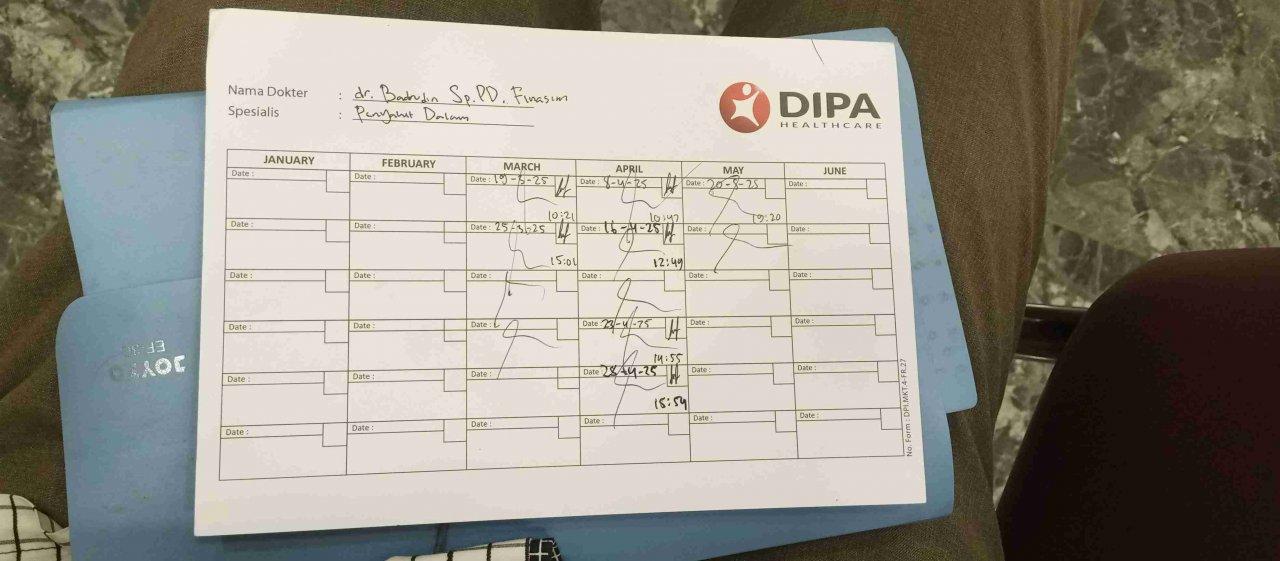 Nama Dokter : dr. Badrudin Sp.PD. Finasim
Spesialis : Penyakit Dalam
DIPA
HEALTHCARE
JANUARY FEBRUARY MARCH APRIL MAY JUNE
Date : Date : Date : 19-3-25 Date : 8-4-25 Date : 20-5-25 Date :
10:21 10:47 19:20
Date : Date : Date : 25-3-25 Date : 16-4-25 Date : Date :
15:01 12:49
Date : Date : Date : Date : Date : Date :
Date : Date : Date : Date : 23-4-25 Date : Date :
14:55
Date : Date : Date : Date : 28-4-25 Date : Date :
15:54
Date : Date : Date : Date : Date : Date :
No. Form : DPI.MKT.4-FR.27
JOYKO